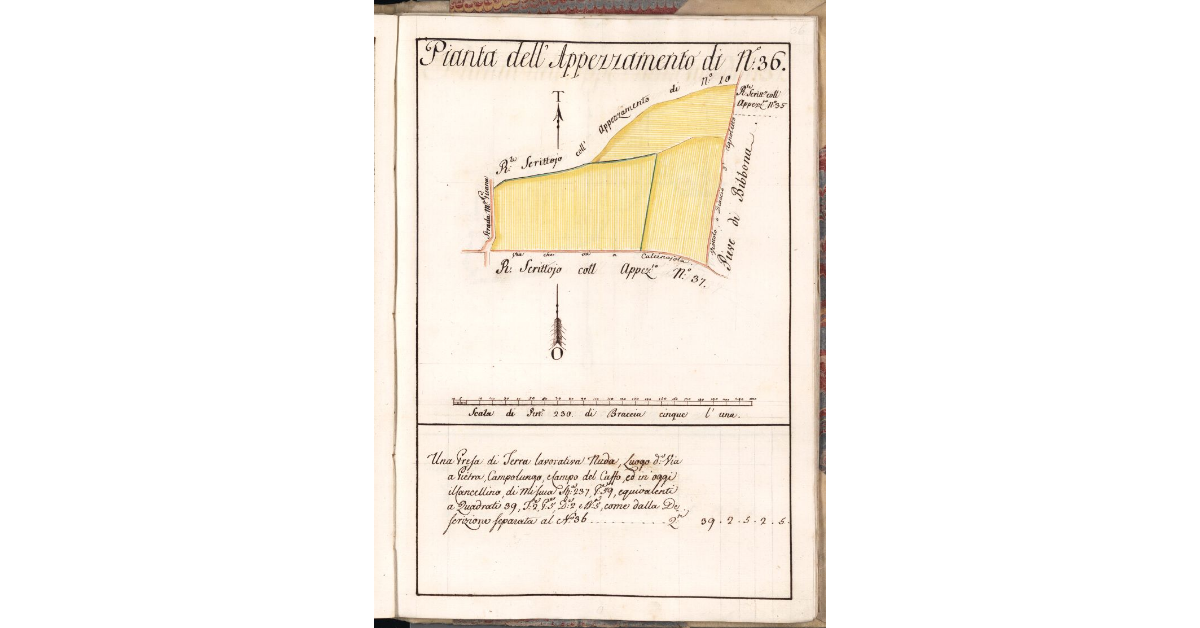 Pianta dell' Appezzamento di N.º 36.
T
R:to Scrittojo coll' Appezzamento di Nº 10
R:to Scritt.º coll
Appezz.to Nº 35
Strada
Pieve di Bibbona
Via che va a Calcinajola
R: Scrittojo coll Appez.to N.º 37.
O
Scala di Per.e 230. di Braccia cinque l' una.
Una Presa di Terra lavorativa Nuda, Luogo d.º Via
a Pietra, Campolungo, e Campo del Ciuffo, ed in oggi
il Cancellino, di Misura 237, 59, equivalenti
a Quadrati 39, T.2, P.5, D.2 e N.5, come dalla De-
scrizione separata al Nº 36 . . . . . . . . . . Q.ti 39 . 2 . 5 . 2 . 5 .